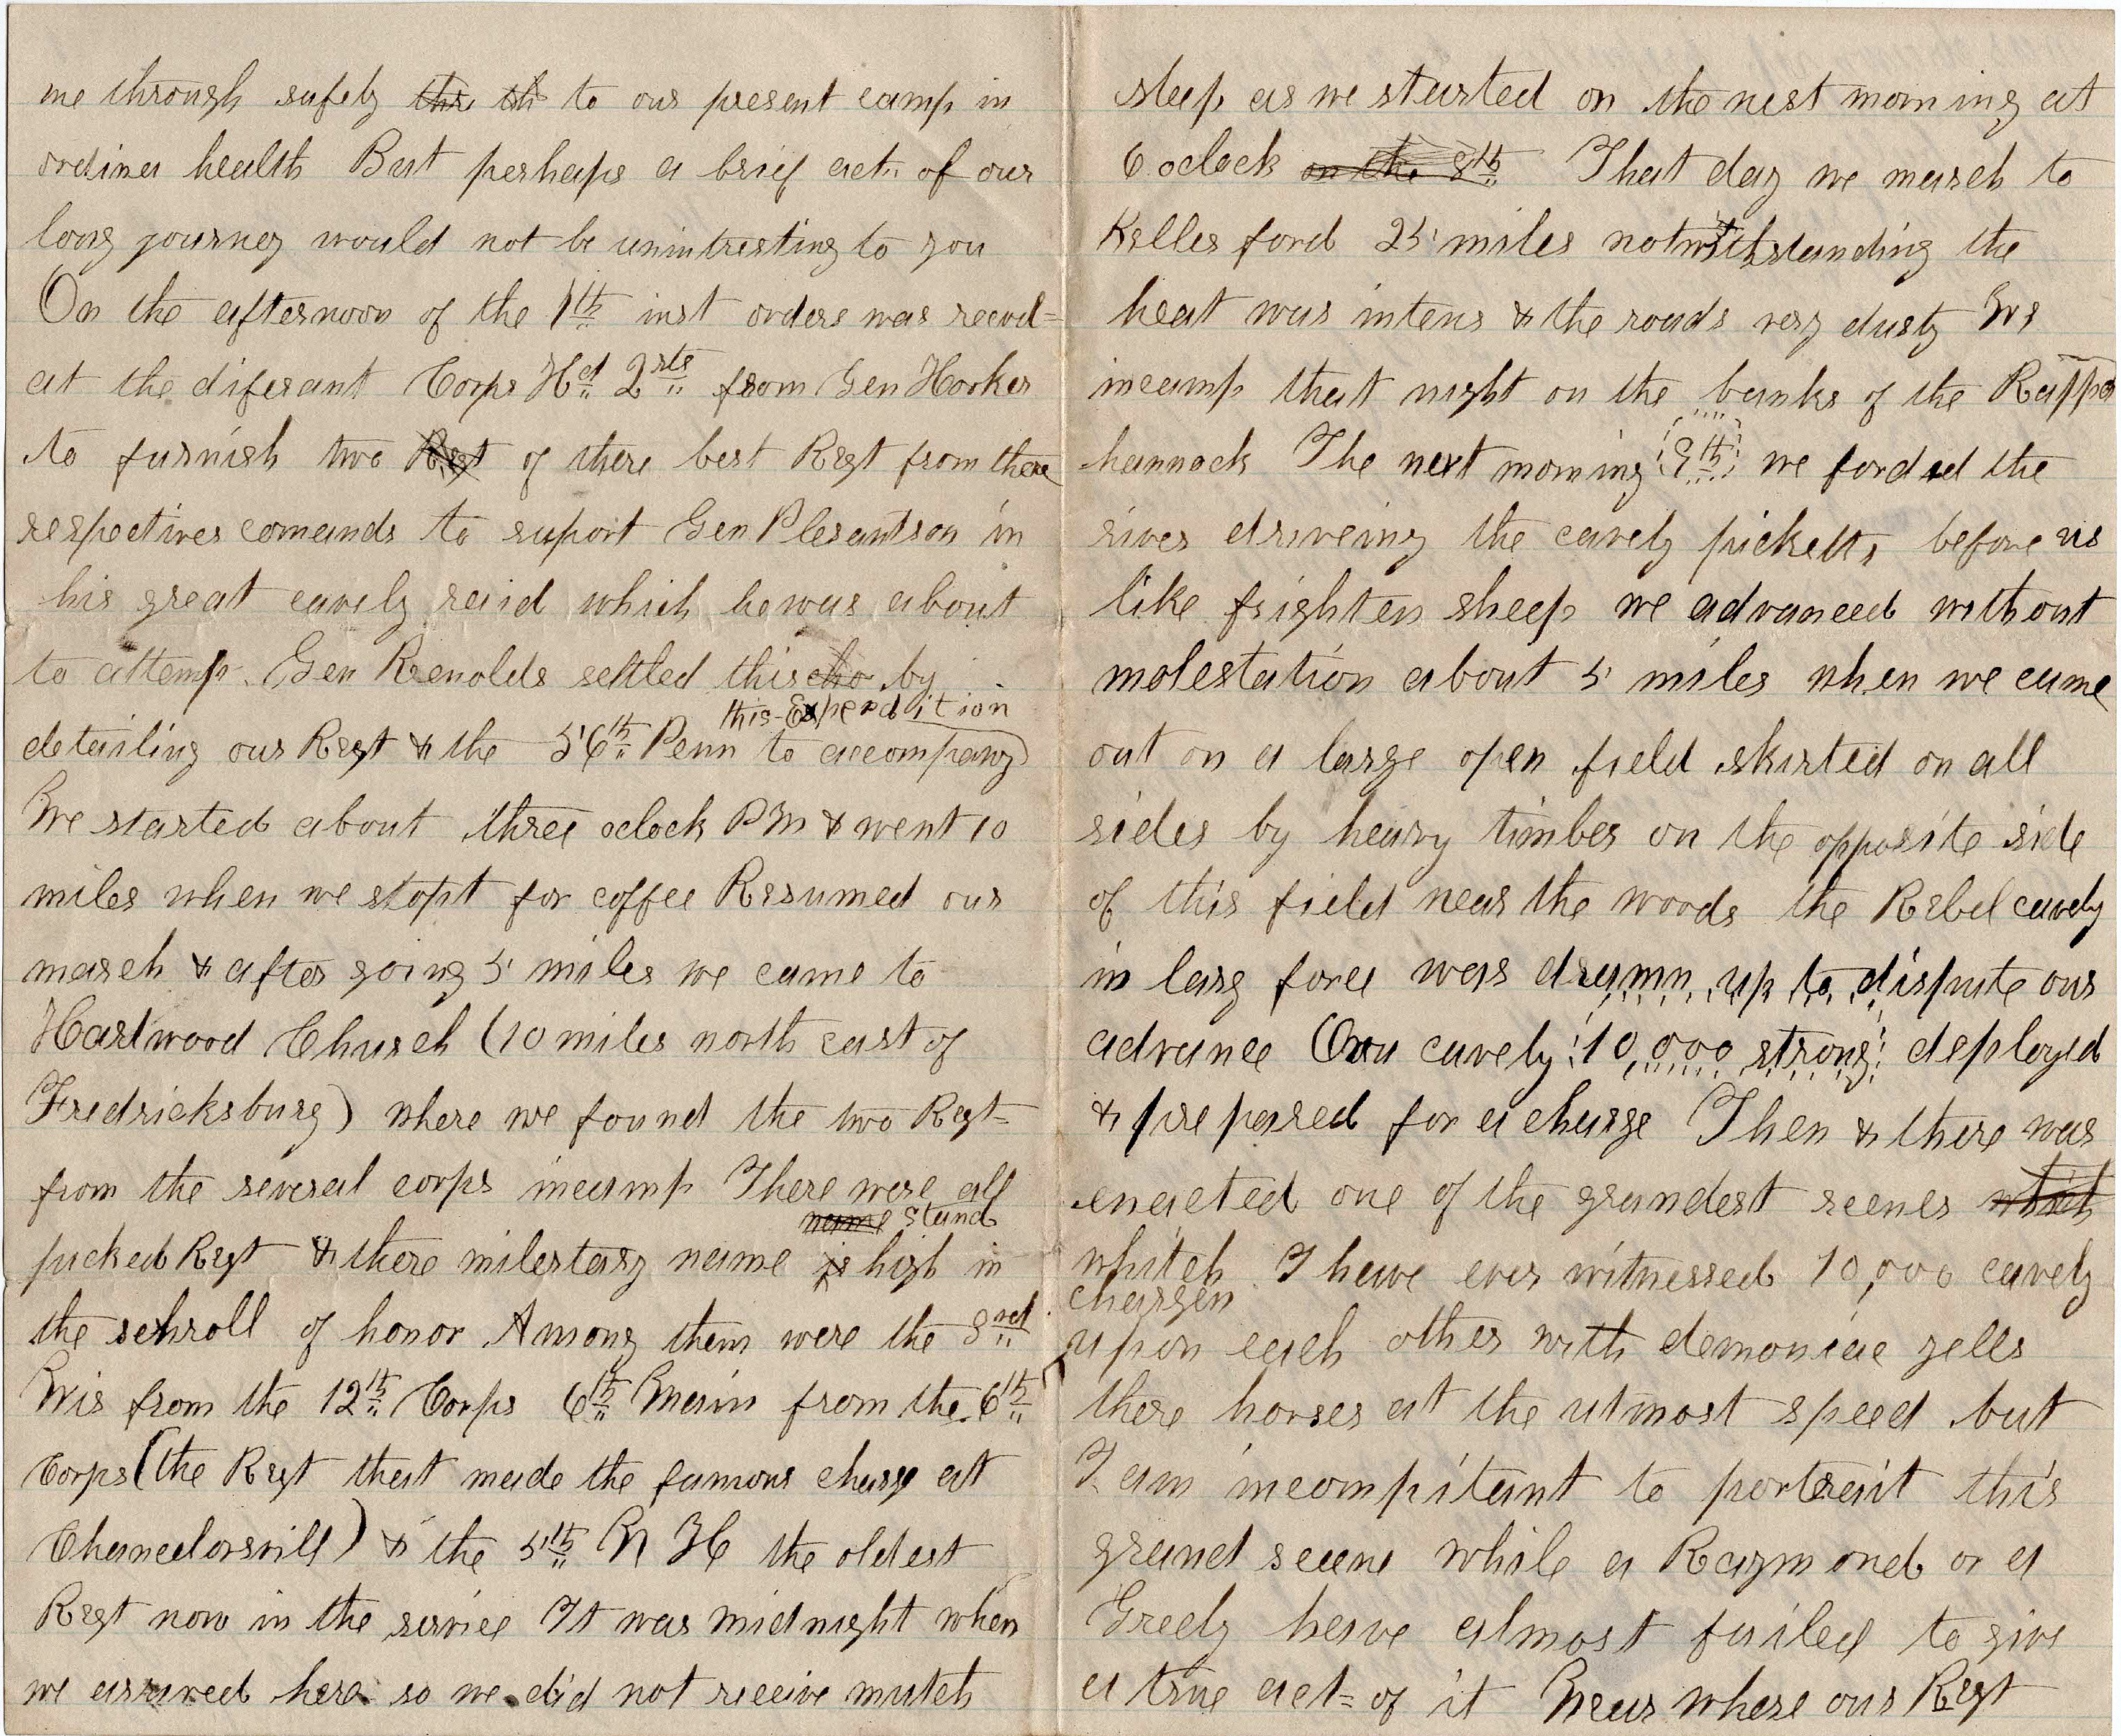 me through safely thr th to our present camp in
ordinea health But perhaps a brief act. of our
long journey would not be unintresting to you
On the afternoon of the 7th inst orders was recevd=
at the diferant Corps Hd Qrts from Gen Hooker
to furnish two Regt of there best Regt from there
respectives comands to suport Gen Plesantson in
his great cavely raid which he was about
to attemp. Gen Renolds settled this cho by
this Expedition
detailing our Regt & the 56th Penn to accompany
We started about three oclock PM & went 10
miles when we stopt for coffee Resumed our
march & after going 5 miles we came to
Hartwood Church (10 miles north east of
Fredricksburg) where we found the two Regt=
from the several corps incamp There were all
name stand
picked Regt & there miletary name is high in
the schroll of honor Among them were the 3rd
Wis from the 12th Corps 6th Main from the 6th
Corps (the Regt that made the famous charge at
Chancelorsvill) & the 5th N H the oldest
Regt now in the service It was midnight when
we arrived here so we did not receive mutch
sleep as we started on the nest morning at
6 oclock on the 8th That day we march to
Kelles ford 25 miles notwithstanding the
heat was intens & the roads very dusty We
incamp that night on the banks of the Rappa
hannock The next morning (9th) we forded the
river driveing the cavely picketts before us
like frighten sheep we advanced without
molestation about 5 miles when we came
out on a large open field skirted on all
sides by heavy timber on the opposite side
of this field near the woods the Rebel cavely
in larg force was drawn up to dispute our
advance Our cavely (10,000 strong) deployed
& prepared for a charge Then & there was
enacted one of the grandest scenes which
whitch I have ever witnessed 10,000 cavely
chargen
upon each other with demoniac yells
there horses at the utmost speed but
I am incompitant to portrait this
grand scene while a Raymond or a
Greely have almost failed to give
a true act= of it Near where our Regt